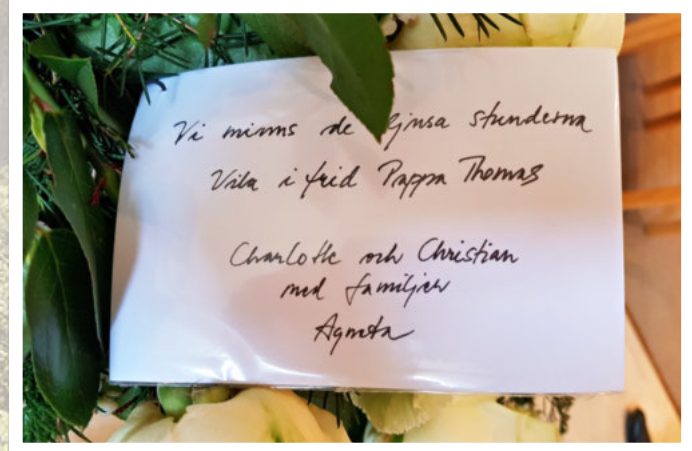 Vi minns de ljusa stunderna
Vila i frid Pappa Thomas
Charlotte och Christian
med familjer
Agneta